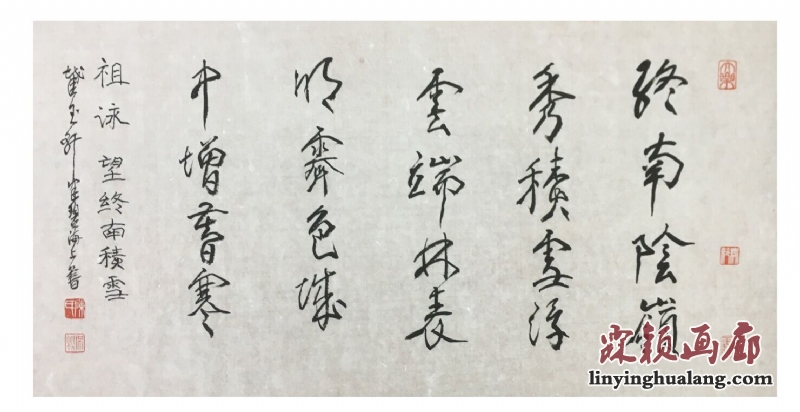 終南陰嶺
秀積雪浮
雲端林表
明霽色城
中增暮寒
祖詠 望終南積雪
玉軒
霖颖画廊
linyinghualang.com